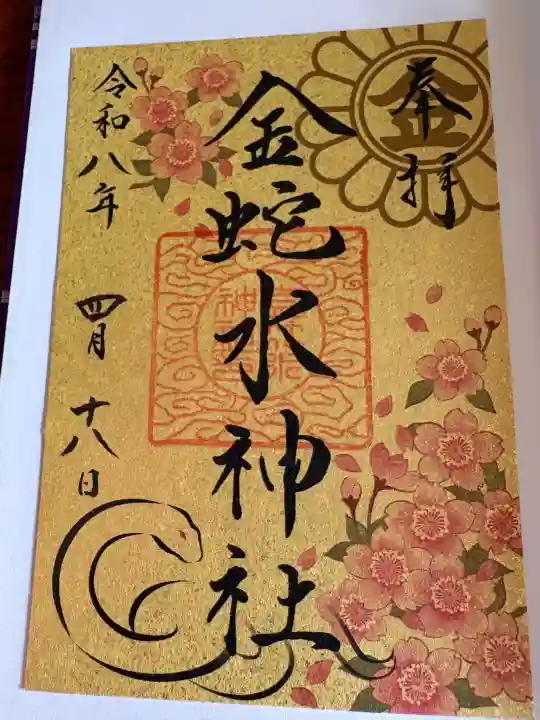 奉拝
金
金蛇水神社
令和八年 四月十八日